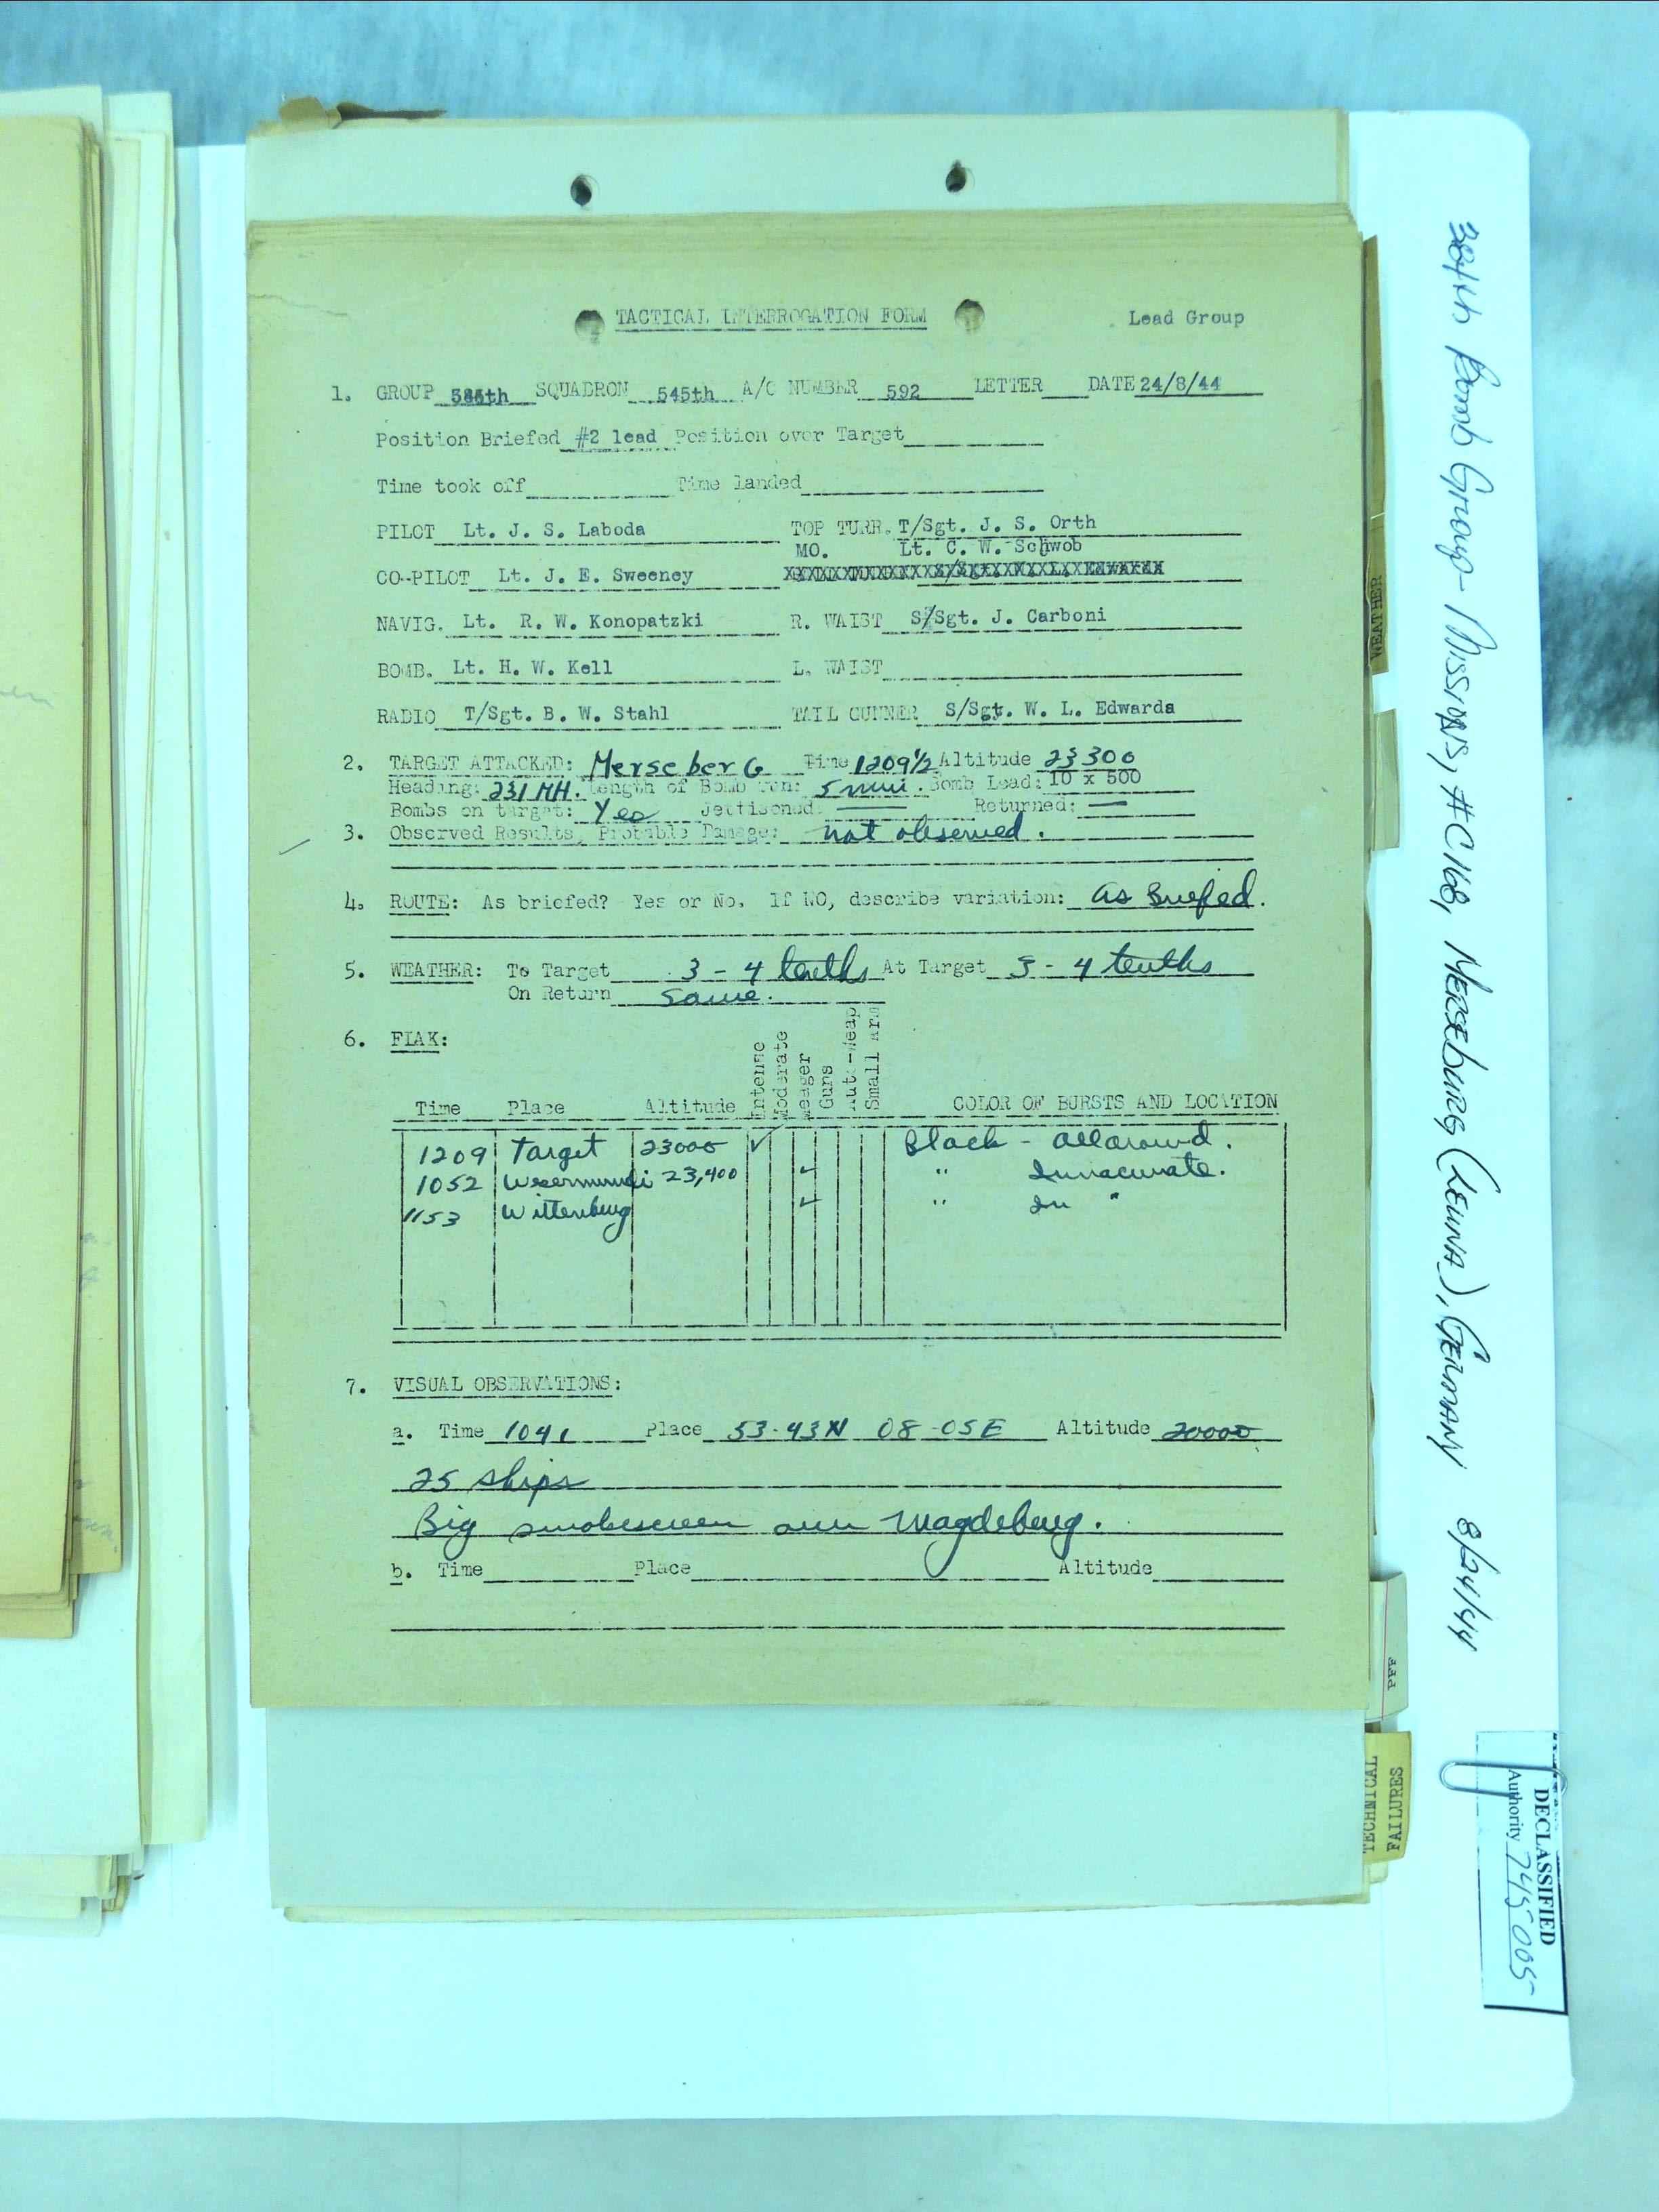 TACTICAL INTERROGATION FORM Lead Group
1. GROUP 384th SQUADRON 545th A/C NUMBER 592 LETTER DATE 24/8/44
Position Briefed #2 lead Position over Target
Time took off Time landed
PILOT Lt. J. S. Laboda TOP TURR. T/Sgt. J. S. Orth
MO. Lt. C. W. Schwob
CO-PILOT Lt. J. E. Sweeney
NAVIG. Lt. R. W. Konopatzki R. WAIST S/Sgt. J. Carboni
BOMB. Lt. H. W. Kell L. WAIST
RADIO T/Sgt. B. W. Stahl TAIL GUNNER S/Sgt. W. L. Edwards
2. TARGET ATTACKED: MerseberG Time 1209½ Altitude 23300
Heading: 231 MH. Length of Bomb run: 5 min. Bomb Load: 10 x 500
Bombs on target: Yes Jettisoned: — Returned: —
3. Observed Results, Probable Damage: not observed.
4. ROUTE: As briefed? Yes or No. If NO, describe variation: as Briefed.
5. WEATHER: To Target 3 - 4 tenths At Target 3 - 4 tenths
On Return same.
6. FLAK:
Intense
Moderate
Meager
Guns
Auto-Weap
Small Arm
Time Place Altitude COLOR OF BURSTS AND LOCATION
1209 Target 23000 ✓ Black - all around.
1052 Wesermundi 23,400 ✓ " Innacurate.
1153 Wittenburg ✓ " In "
7. VISUAL OBSERVATIONS:
a. Time 1041 Place 53-43N 08-05E Altitude 20000
25 ships
Big smokescreen over Magdeburg.
b. Time Place Altitude
WEATHER
PFF
TECHNICAL
FAILURES
384th Bomb Group - Missions, #C168, Merseburg (Leuna), Germany 8/24/44
DECLASSIFIED
Authority 745005